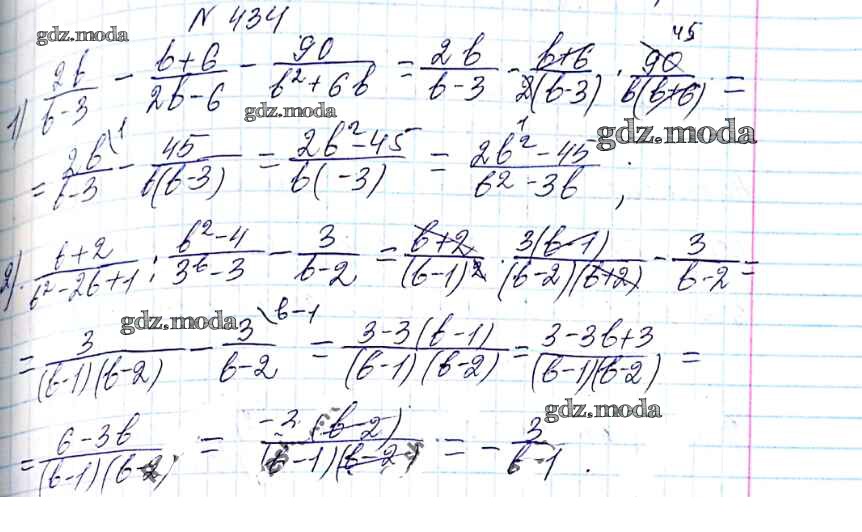 N 434
gdz.moda
45
1) 2b/(b-3) - (b+6)/(2b-6) - 90/(b²+6b) = 2b/(b-3) - (b+6)/(2(b-3)) · 90/(b(b+6)) =
gdz.moda
gdz.moda
= 2b/(b-3) - 45/(b(b-3)) = (2b²-45)/(b( -3)) = (2b²-45)/(b²-3b) ;
2) (b+2)/(b²-2b+1) : (b²-4)/(3b-3) - 3/(b-2) = (b+2)/(b-1)² · 3(b-1)/((b-2)(b+2)) - 3/(b-2) =
gdz.moda
= 3/((b-1)(b-2)) - 3/(b-2) \b-1 = (3-3(b-1))/((b-1)(b-2)) = (3-3b+3)/((b-1)(b-2)) =
gdz.moda
= (6-3b)/((b-1)(b-2)) = -3(b-2)/((b-1)(b-2)) = - 3/(b-1) .
gdz.moda